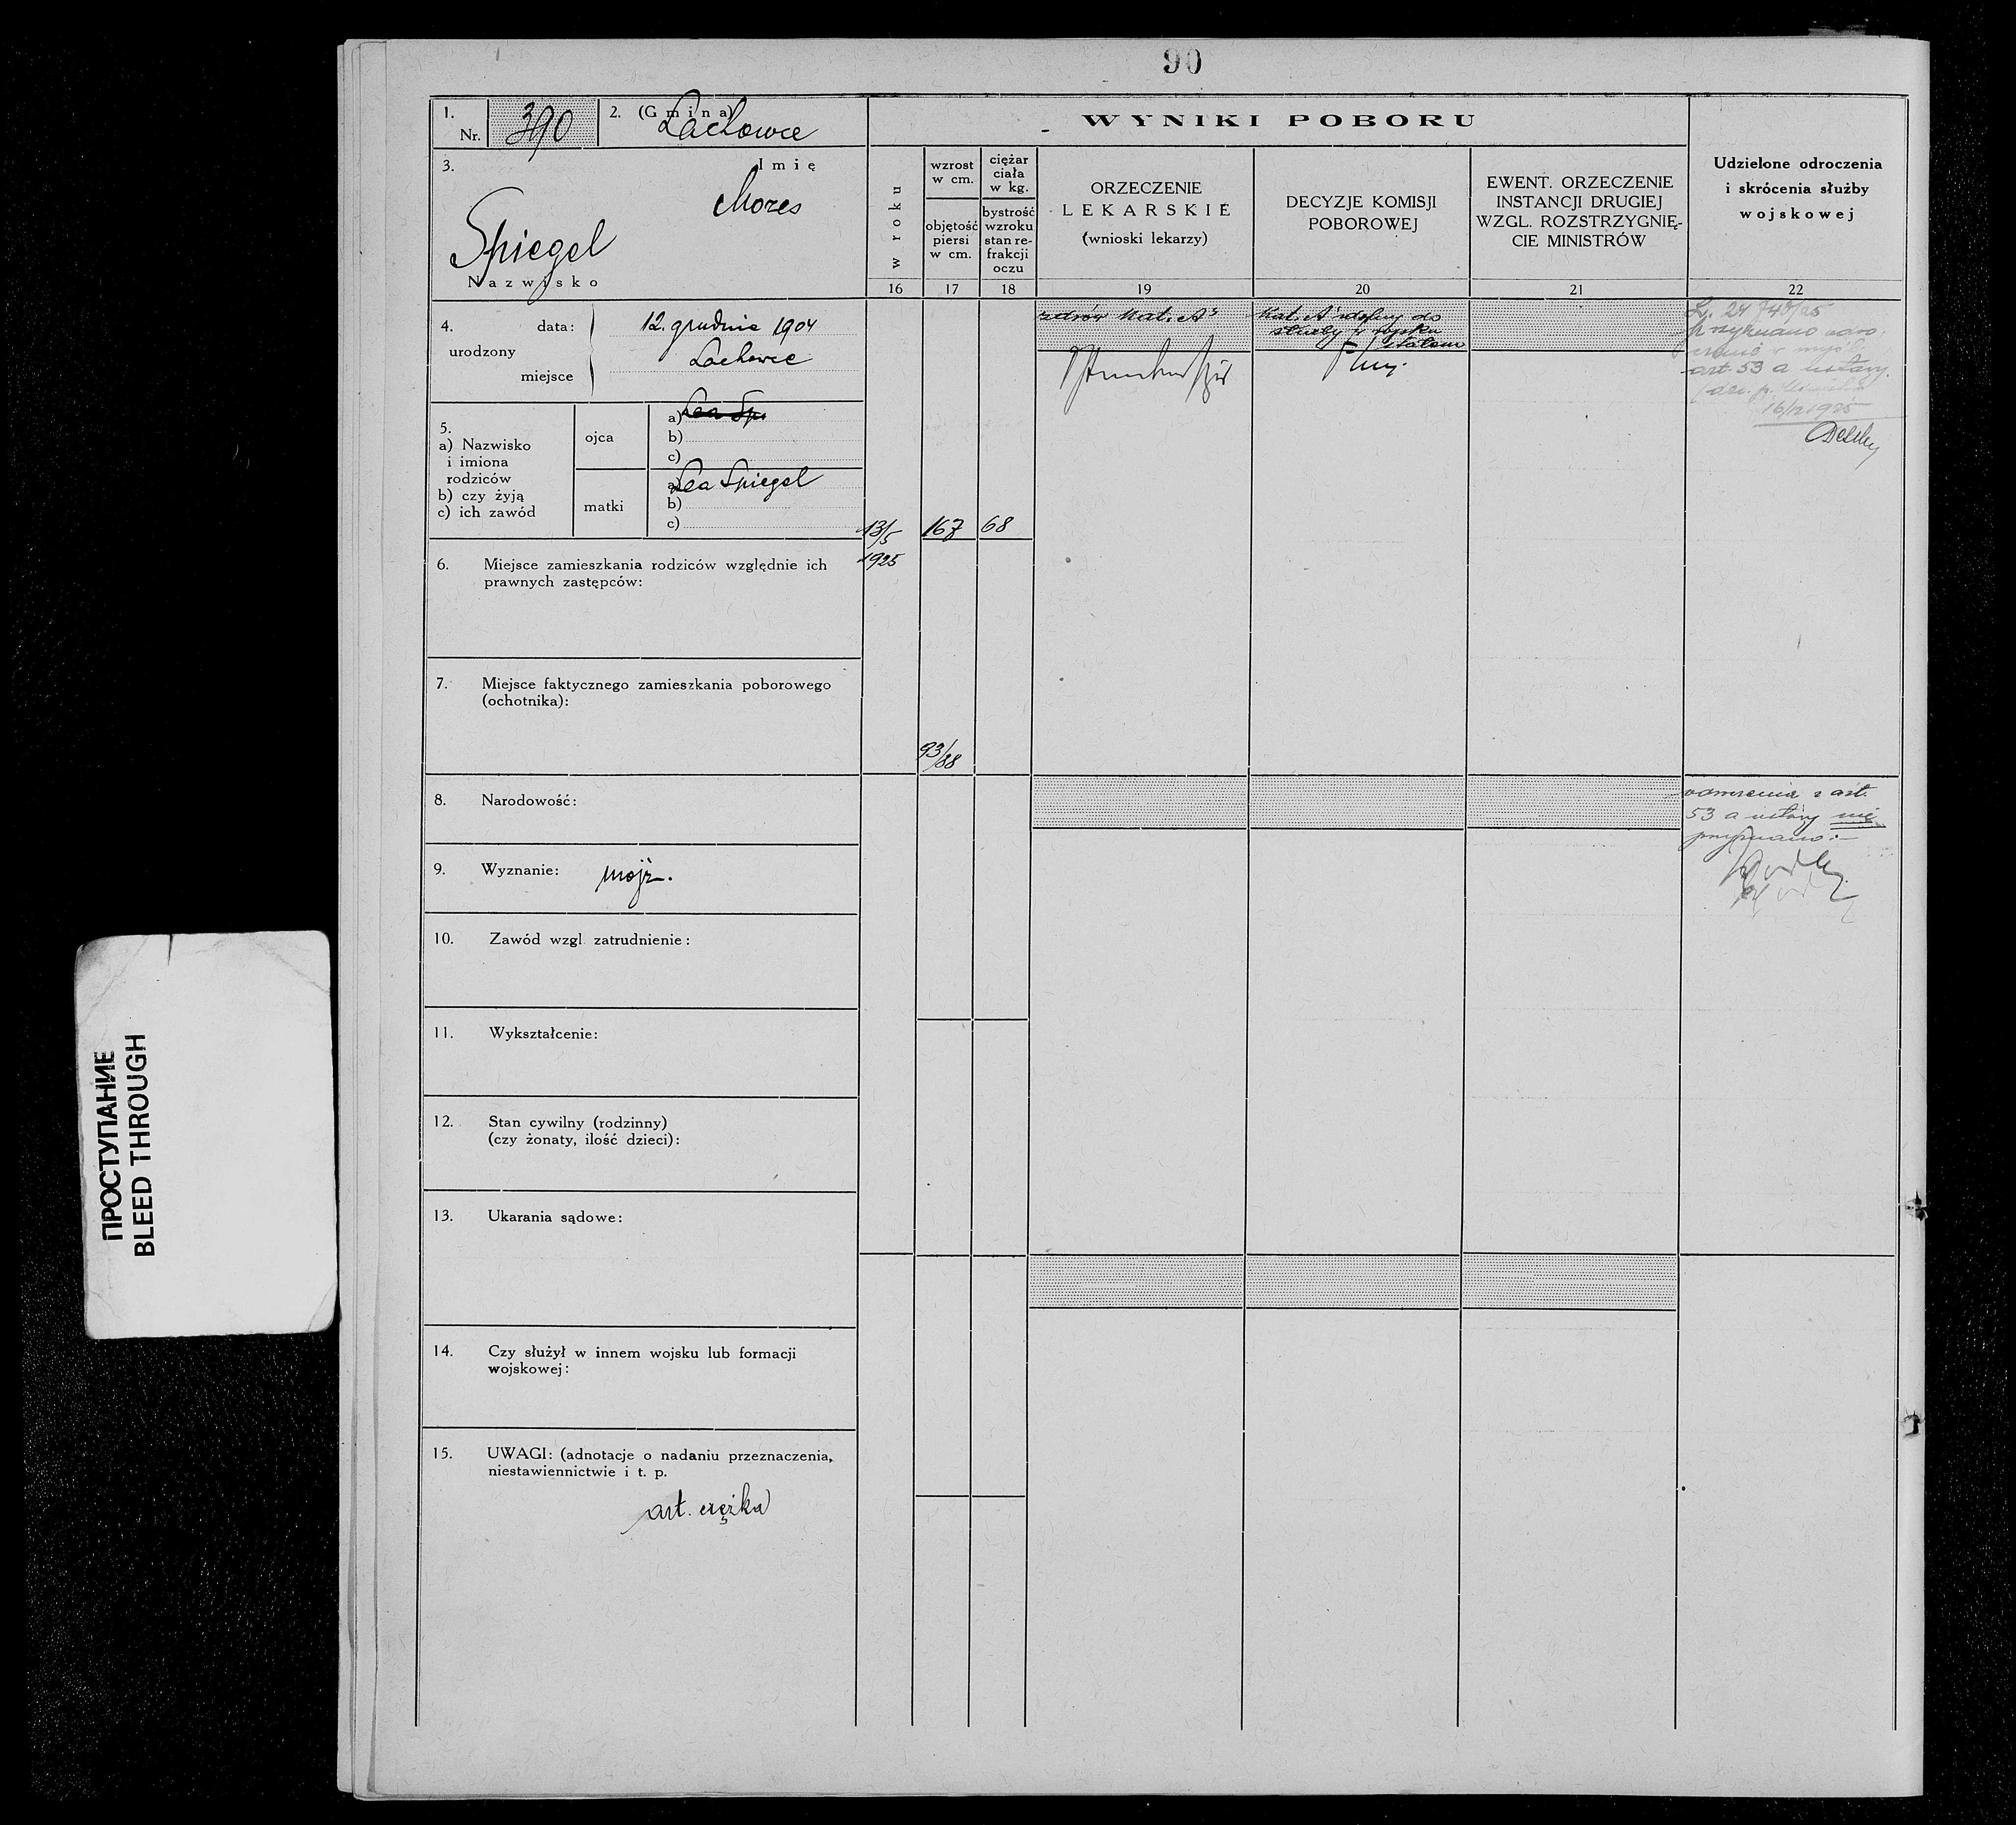 90
1. Nr. 390 2. (Gmina) Lachowce
3. Imię
Mozes
Spiegel
Nazwisko
4. urodzony
data: 12. grudnia 1904
miejsce Lachowce
5.
a) Nazwisko
i imiona
rodziców
b) czy żyją
c) ich zawód
ojca
a) Lea Sp.
b)
c)
matki
a) Lea Spiegel
b)
c)
6. Miejsce zamieszkania rodziców względnie ich
prawnych zastępców:
7. Miejsce faktycznego zamieszkania poborowego
(ochotnika):
8. Narodowość:
9. Wyznanie: mojż.
10. Zawód wzgl. zatrudnienie:
11. Wykształcenie:
12. Stan cywilny (rodzinny)
(czy żonaty, ilość dzieci):
13. Ukarania sądowe:
14. Czy służył w innem wojsku lub formacji
wojskowej:
15. UWAGI: (adnotacje o nadaniu przeznaczenia,
niestawiennictwie i t. p.
art. ciężka
WYNIKI POBORU
w roku
16
wzrost
w cm.
objętość
piersi
w cm.
17
ciężar
ciała
w kg.
bystrość
wzroku
stan re-
frakcji
oczu
18
ORZECZENIE
LEKARSKIE
(wnioski lekarzy)
19
DECYZJE KOMISJI
POBOROWEJ
20
EWENT. ORZECZENIE
INSTANCJI DRUGIEJ
WZGL. ROZSTRZYGNIĘ-
CIE MINISTRÓW
21
Udzielone odroczenia
i skrócenia służby
wojskowej
22
13/5
1925
167
68
93/88
zdrów Kat. A
Kat. A zdolny do
służby w wojsku
stałem
L. 24740/25
przyznano odro-
czenie w myśl
art. 53 a ustawy.
16/12 1925
odroczenia z art.
53 a ustawy nie
przyznano.—
ПРОСТУПАНИЕ
BLEED THROUGH